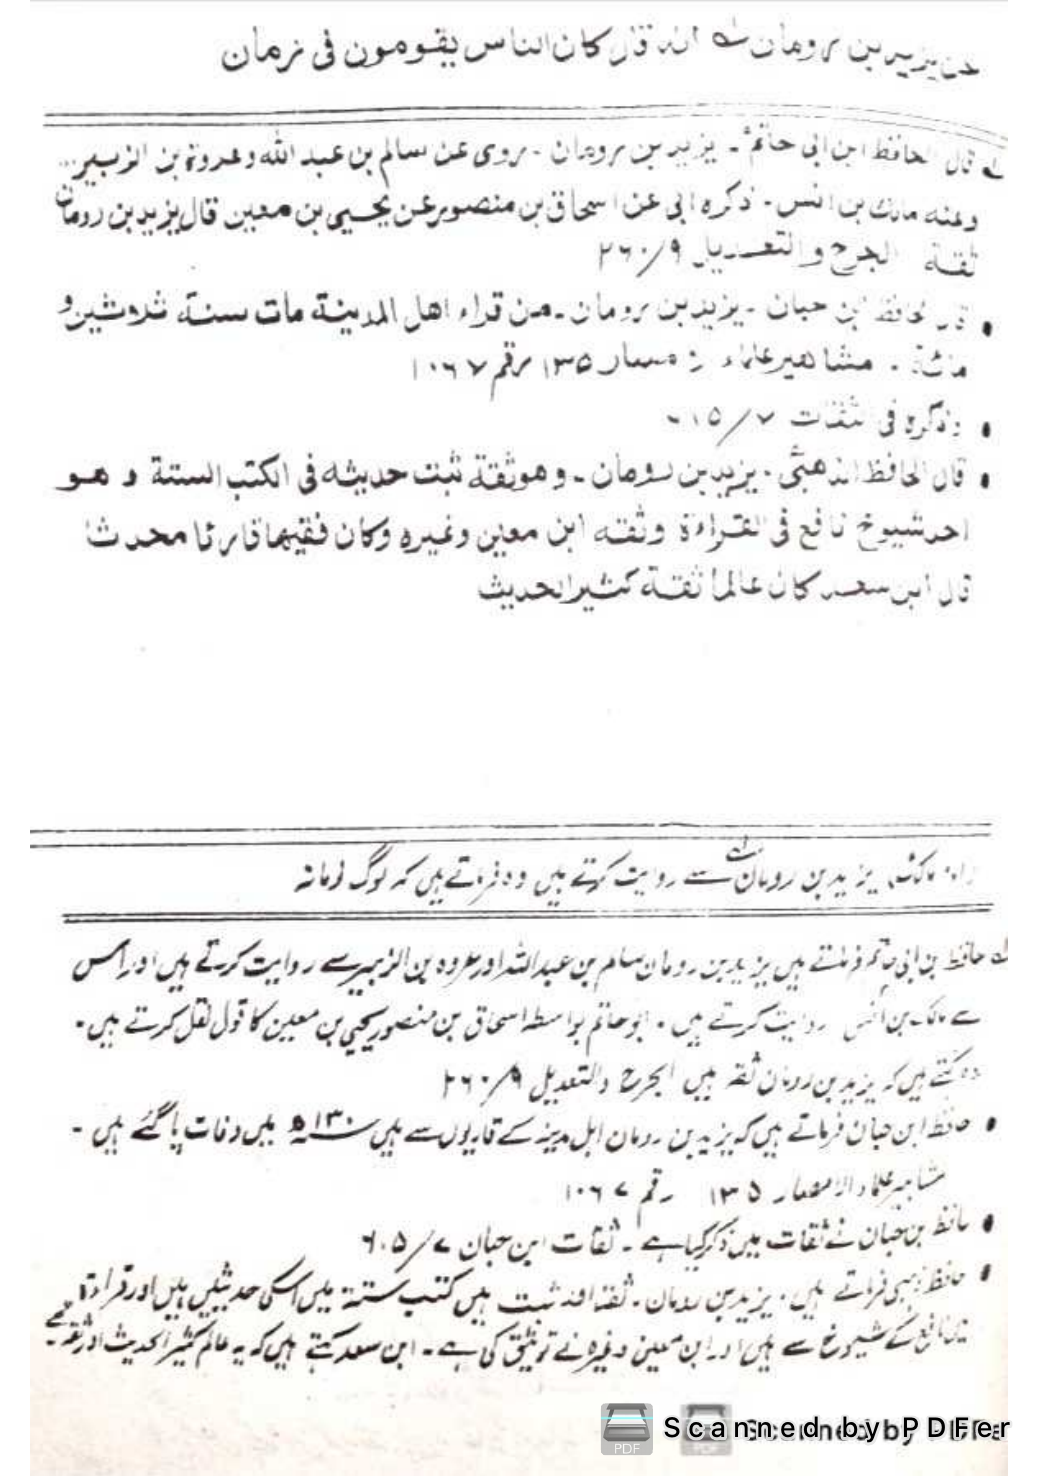 عن يزيد بن رومان له انه قال كان الناس يقومون فى زمان
له قال الحافظ ابن ابى حاتمؒ ـ يزيد بن رومان ـ روى عن سالم بن عبد الله وعروة بن الزبير ...
وعنه مالك بن انس ـ ذكره ابى عن اسحاق بن منصور عن يحيى بن معين قال يزيد بن رومان
ثقة الجرح والتعديل ۲۶۰/۹
• قال الحافظ ابن حبان ـ يزيد بن رومان ـ من قراء اهل المدينة مات سنة ثلاثين و
مائة ـ مشاهير علماء الامصار ۱۳۵ رقم ۱۰۶۷
• وذكره فى الثقات ۷/
• قال الحافظ الذهبىؒ ـ يزيد بن رومان ـ وهو ثقة ثبت حديثه فى الكتب الستة و هو
احد شيوخ نافع فى القراءة وثقه ابن معين وغيره وكان فقيها قارئا محدثا
قال ابن سعد كان عالما ثقة كثير الحديث
مالکؒ، یزید بن رومانؒ لہ سے روایت کرتے ہیں وہ فرماتے ہیں کہ لوگ زمانہ
لہ حافظ بن ابی حاتم فرماتے ہیں یزید بن رومان سالم بن عبداللہ اور عروہ بن الزبیر سے روایت کرتے ہیں اور اس
سے مالک بن انس روایت کرتے ہیں ۔ ابو حاتم بواسطہ اسحاق بن منصور یحیی بن معین کا قول نقل کرتے ہیں ۔
وہ کہتے ہیں کہ یزید بن رومان ثقہ ہیں الجرح والتعدیل ۲۶۰/۹
• حافظ ابن حبان فرماتے ہیں کہ یزید بن رومان اہل مدینہ کے قاریوں سے ہیں ۱۳۰ سنہ ھ میں وفات پا گئے ہیں ۔
مشاہیر علماء الامصار ۱۳۵ رقم ۱۰۶۷
• حافظ بن حبان نے ثقات میں ذکر کیا ہے ۔ ثقات ابن حبان ۶۰۵/۷
• حافظ ذہبی فرماتے ہیں ۔ یزید بن رومان ۔ ثقہ اور ثبت ہیں کتب ستہ میں اسکی حدیثیں ہیں اور قراءۃ
میں نافع کے شیوخ سے ہیں اور ابن معین وغیرہ نے توثیق کی ہے ۔ ابن سعد کہتے ہیں کہ یہ عالم کثیر الحدیث اور ثقہ تھے ۔
Scanned by PDFer